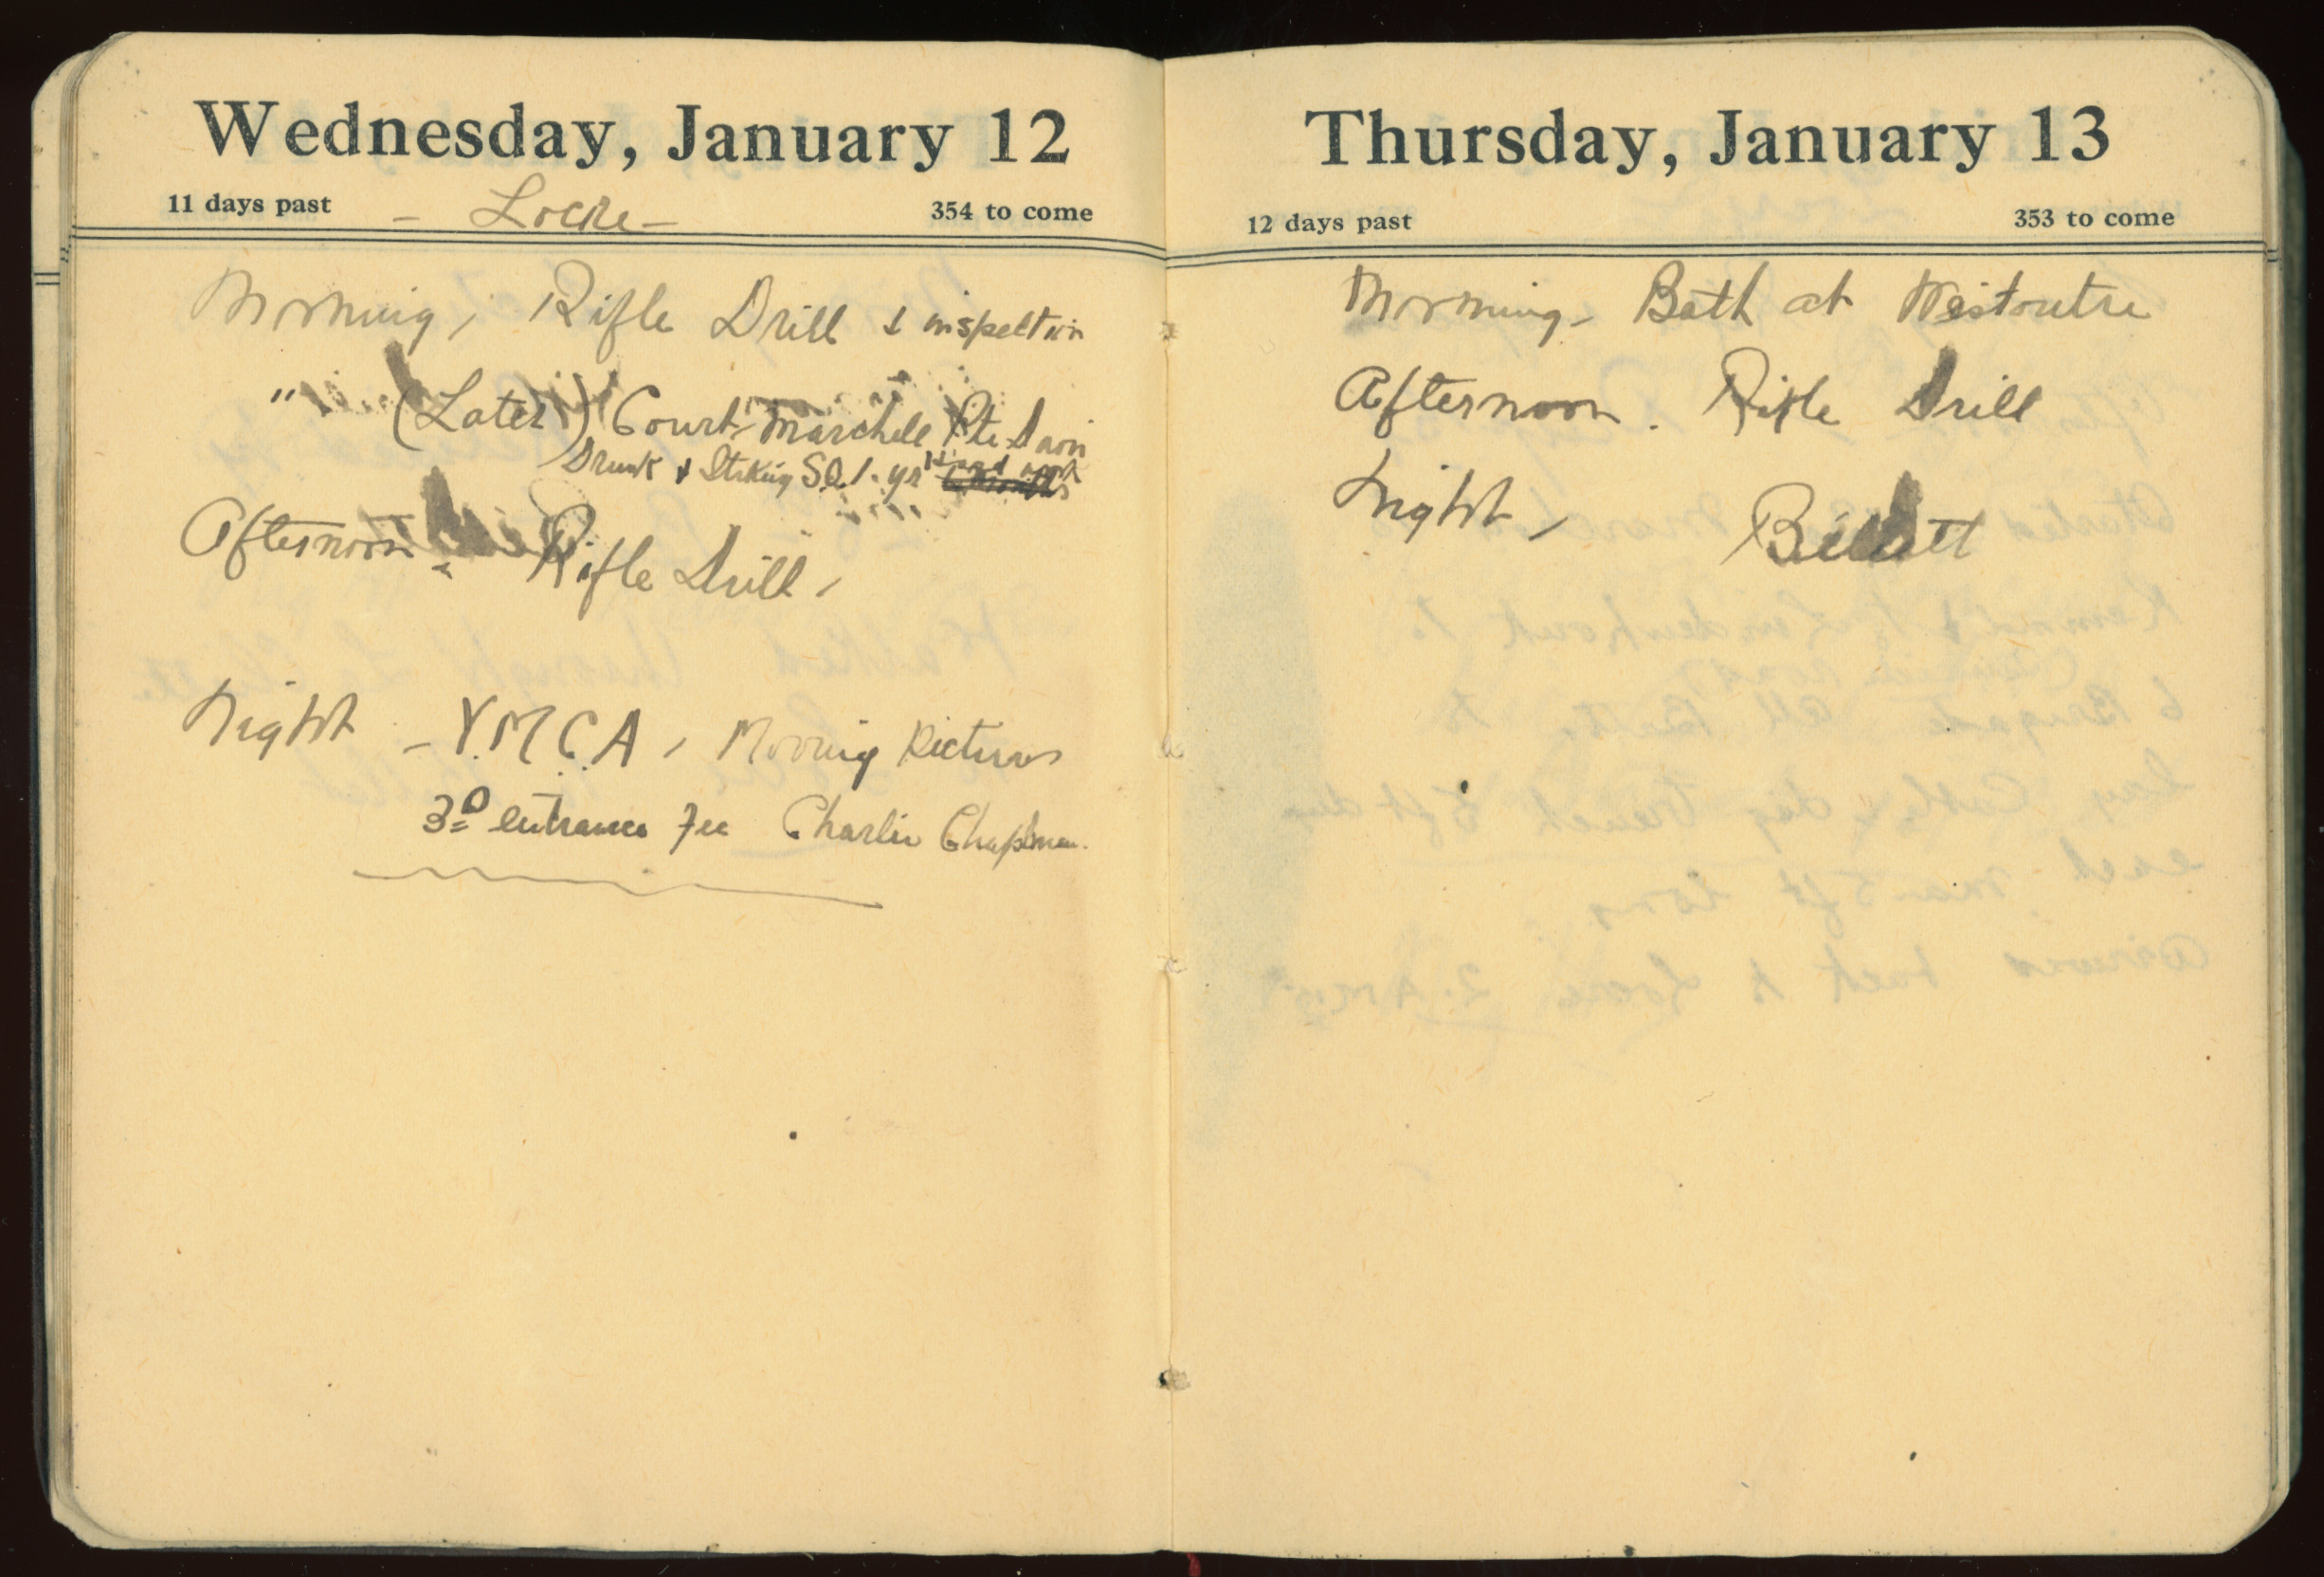 Wednesday, January 12
11 days past - Locre - 354 to come
Morning, Rifle Drill & inspection
" (Later) Court Marchell Pte
Drunk & Striking SQ 1. yr hard work
Afternoon - Rifle Drill,
Night - Y.M.C.A, Moving Pictures
3D entrance Fee Charlie Chapman.
Thursday, January 13
12 days past 353 to come
Morning - Bath at Westoutre
Afternoon. Rifle Drill
Night, Billett